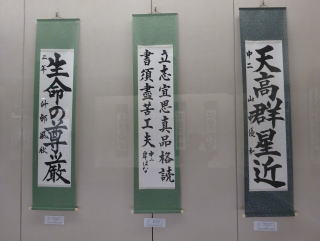 生命の尊厳
三年
立志宜思真品格読
書須盡苦工夫
天高群星近
中二